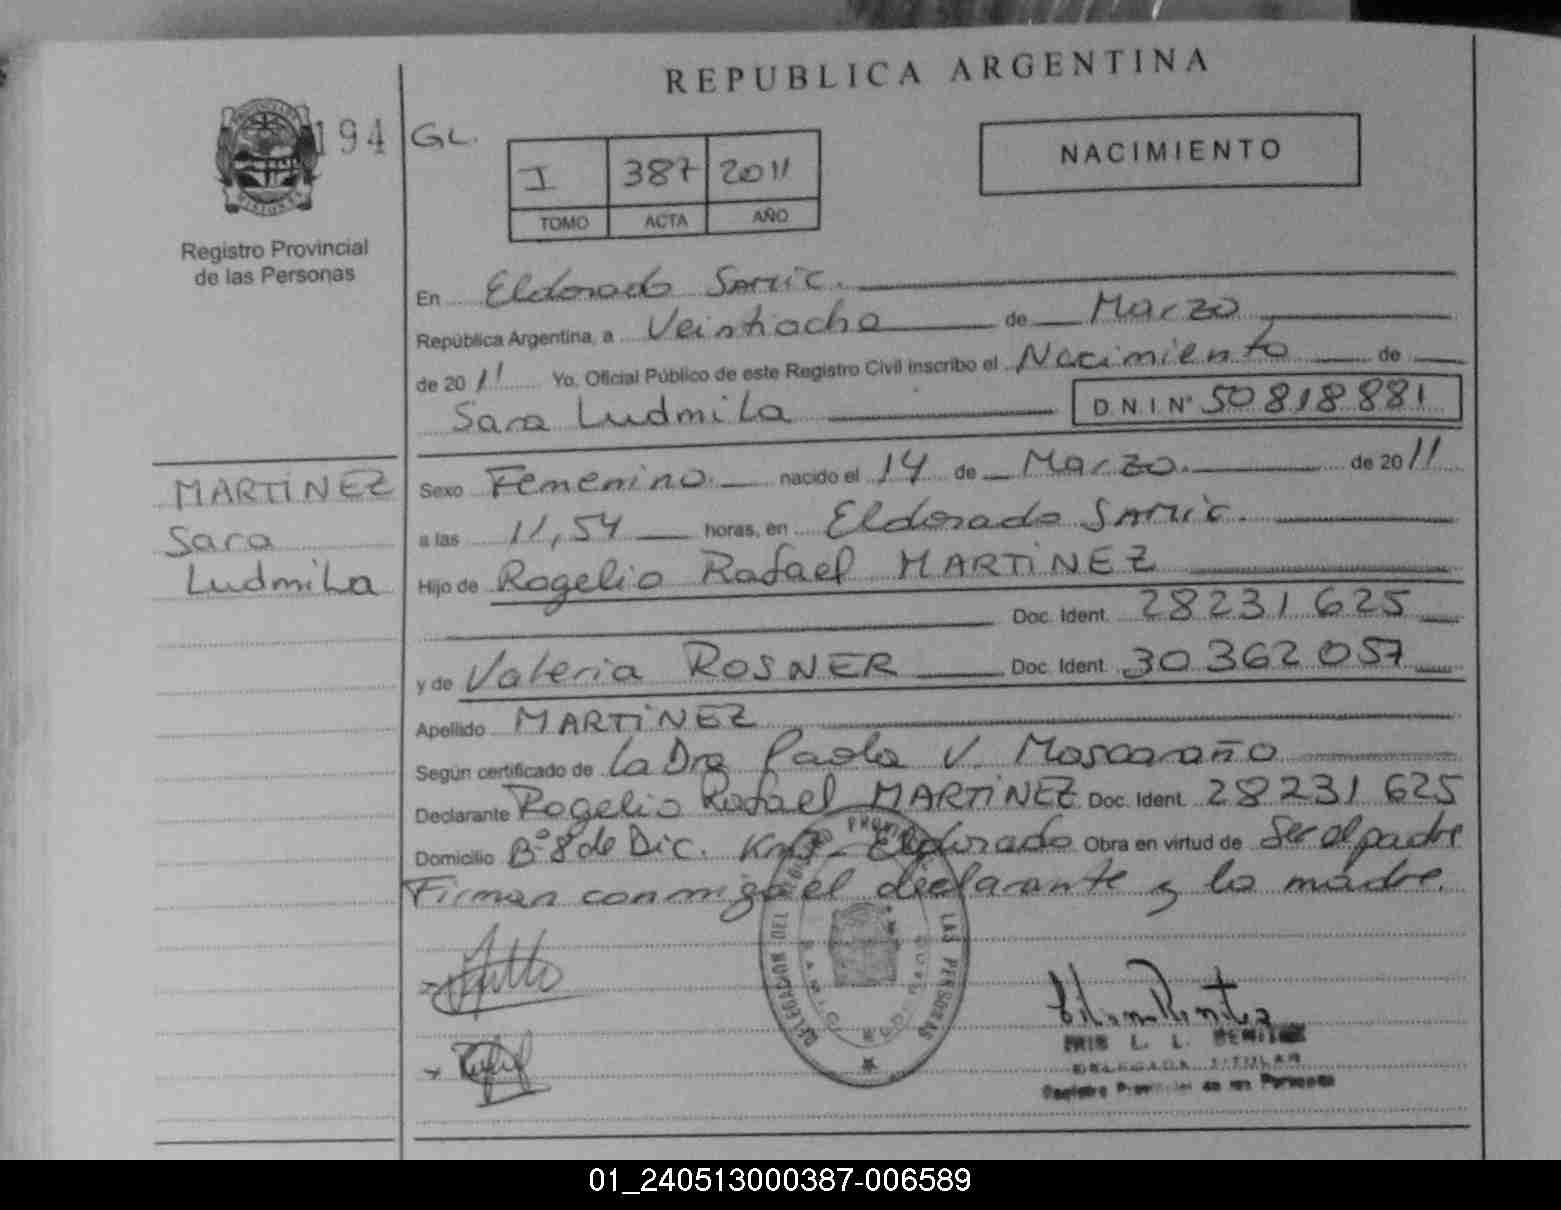 REPUBLICA ARGENTINA
194 GL.
NACIMIENTO
I 387 2011
TOMO ACTA AÑO
Registro Provincial
de las Personas
En Eldorado Samic.
República Argentina, a Veintiocho de Marzo
de 2011 Yo, Oficial Público de este Registro Civil inscribo el Nacimiento de
Sara Ludmila D.N.I. Nº 50818881
MARTINEZ
Sara
Ludmila
Sexo Femenino nacido el 14 de Marzo. de 2011
a las 11,54 horas, en Eldorado Samic.
Hijo de Rogelio Rafael MARTINEZ
Doc. Ident. 28231625
y de Valeria ROSNER Doc. Ident. 30362057
Apellido MARTINEZ
Según certificado de La Dra Paola V.
Declarante Rogelio Rafael MARTINEZ Doc. Ident. 28231625
Domicilio Bº 8 de Dic. Eldorado Obra en virtud de Ser el padre
Firman conmigo el declarante y la madre.
DELEGACION DEL REGISTRO PROVINCIAL LAS PERSONAS
L. L. BENITEZ
DELEGADA TITULAR
Registro Provincial de las Personas
01_240513000387-006589